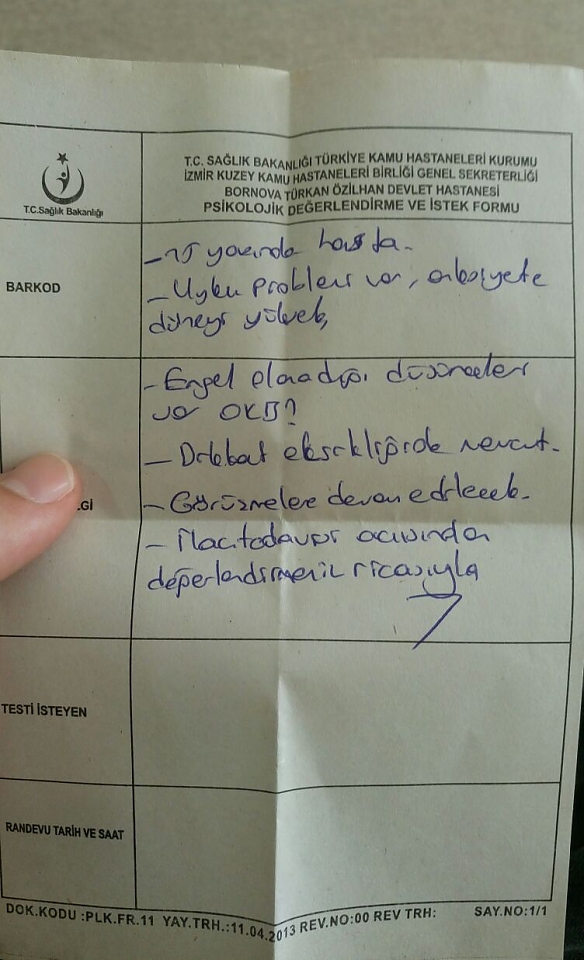 T.C. SAĞLIK BAKANLIĞI TÜRKİYE KAMU HASTANELERİ KURUMU
İZMİR KUZEY KAMU HASTANELERİ BİRLİĞİ GENEL SEKRETERLİĞİ
BORNOVA TÜRKAN ÖZİLHAN DEVLET HASTANESİ
PSİKOLOJİK DEĞERLENDİRME VE İSTEK FORMU
T.C.Sağlık Bakanlığı
BARKOD
yaşında hasta.
- Uyku problemi var, anksiyete
düzeyi yüksek,
- Engel olamadığı düşünceleri
var OKB?
- Dikkat eksikliği de mevcut.
LGİ
- Görüşmelere devam edilecek.
- İlaç tedavisi açısından
değerlendirmeniz ricasıyla
TESTİ İSTEYEN
RANDEVU TARİH VE SAAT
DOK.KODU :PLK.FR.11 YAY.TRH.:11.04.2013 REV.NO:00 REV TRH: SAY.NO:1/1